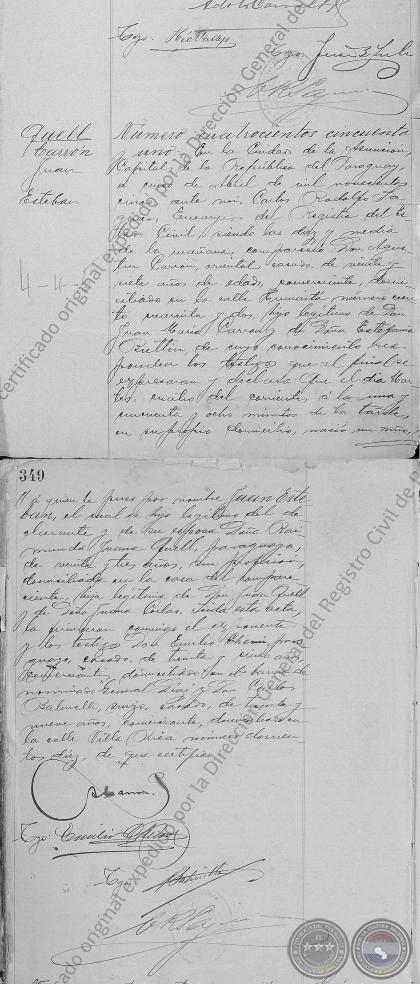 Tgo.
Tgo. Juan
Quell
Carrón
Juan
Esteban
4-4-
Número cuatrocientos cincuenta
y uno. En la Ciudad de la Asunción,
Capital de la República del Paraguay,
a cinco de Abril de mil novecientos
cinco ante mi, Carlos Rodolfo
Encargado del Registro del Es
tado Civil, siendo las diez y media
de la mañana, compareció Don Agus
tin Carrón, oriental casado, de veinte y
siete años de edad, comerciante, domi
ciliado en la calle Humaitá número cien
to cuarenta y dos, hijo legítimo de Don
Juan Maria Carron y de Doña Estefanía
de cuyo conocimiento res
ponden los testigos que al final se
expresaran y declara: Que el dia Mar
tes, cuatro del corriente, á la una y
cincuenta y ocho minutos de la tarde,
en su propio domicilio, nació un niño,
349
á quien le puso por nombre Juan Este
ban, el cual es hijo legítimo del de
clarante y de su esposa Doña Rai
munda Juana Quell, paraguaya,
de veinte y tres años, sin profesión,
domiciliada en la casa del compare
ciente, hija legítima de Don Juan Quell
y de Doña Leida esta acta,
la firmaron conmigo el exponente
y los testigos Don Emilio para
guayo, casado, de treinta y cinco años,
comerciante, domiciliado en el barrio de
nominado General Diaz y Don Carlos
suizo, casado, de treinta y
nueve años, comerciante, domiciliado en
la calle Villa Rica número doscien
tos diez, de que certifico.
Tgo: Emilio
Tgo:
certificado original expedido por la Dirección General del
certificado original expedido por la Dirección General del Registro Civil de